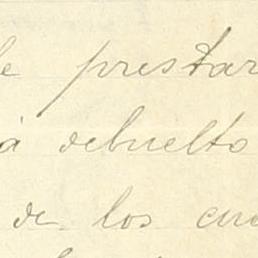 le prestar
à debuelto
de los cua